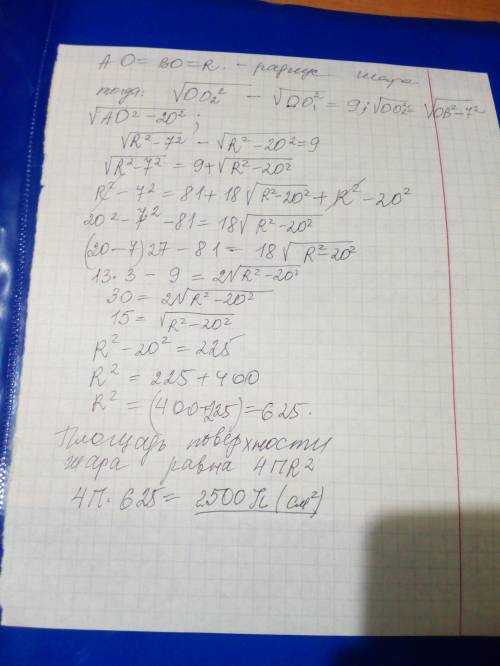 AO = BO = R. - радиус шара
тогда: √OO₂² - √OO₁² = 9; √OO₂² = √OB²-7²
√AO² - 20²;
√R²-7² - √R²-20² = 9
√R²-7² = 9+√R²-20²
R²-7² = 81+18√R²-20² + R²-20²
20²-7²-81 = 18√R²-20²
(20-7)27-81 = 18√R²-20²
13·3 - 9 = 2√R²-20²
30 = 2√R²-20²
15 = √R²-20²
R²-20² = 225
R² = 225+400
R² = (400+225) = 625.
Площадь поверхности
шара равна 4ПR²
4П·625 = 2500П (см²)